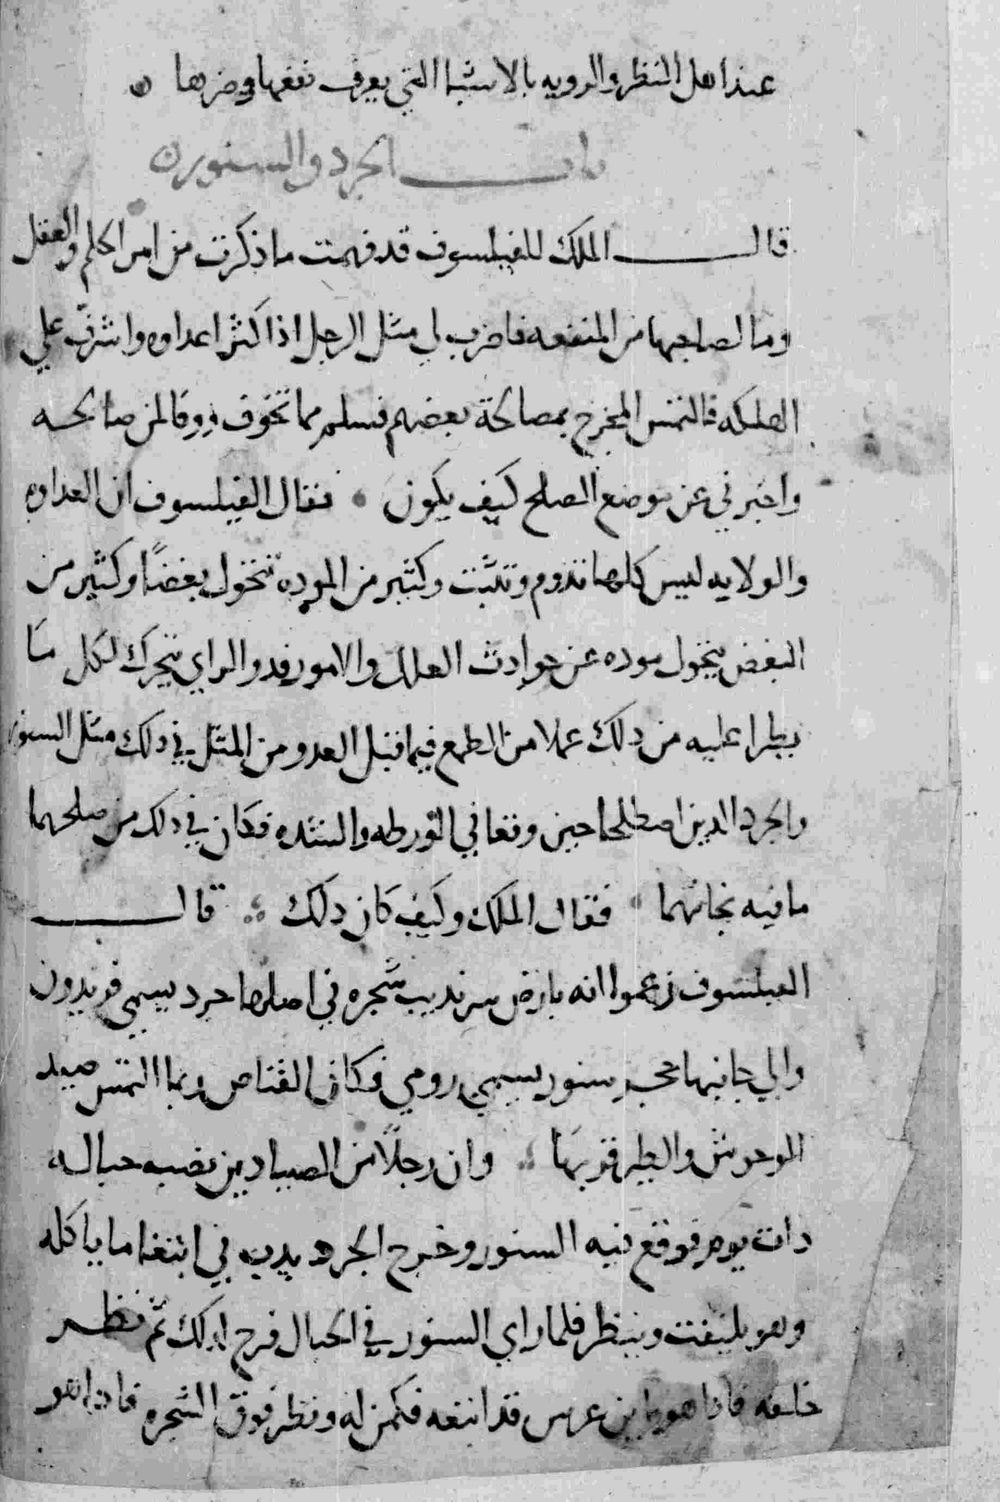 عند اهل النظر والرويه بالاشيا التي يعرف نفعها وضرها
باب الجرد والسنور
قال الملك للفيلسوف قد فهمت ما ذكرت من امر الحلم والعقل
وما لصاحبهما من المنفعه فاضرب لي مثل الرجل اذا كثر اعداوه واشرف علي
الهلكه فالتمس المخرج بمصالحة بعضهم فسلم مما تخوف ووفا لمن صالحه
واخبرني عن موضع الصلح كيف يكون فقال الفيلسوف ان العداوه
والولايه ليس كلها تدوم وتثبت وكثير من الموده تتحول بغضًا وكثير من
البغض يتحول موده عن حوادث العلل والامور والراي يتحرك لكل ما
يطرا عليه من دلك عملا من الطمع فيما قبل العدو من المثل في دلك مثل السنور
والجرد الدين اصطلحا حين وقعا في الورطه والشده فكان في دلك من صلحهما
ما فيه نجاتهما فقال الملك وكيف كان دلك قال
الفيلسوف زعموا انه بارض سرنديب شجره في اصلها جرد يسمي فريدون
والي جانبها جحر سنور يسمي رومي وكان القناص ربما التمس صيد
الوحوش والطير قربها وان رجلًا من الصيادين نصب حباله
دات يوم فوقع فيه السنور وخرج الجرد يدب في ابتغا ما ياكله
وهو يلتفت وينظر فلما راي السنور في الحبال فرح لدلك ثم نظر
خلفه فادا هو بابن عرس قد اتبعه فكمن له ونظر فوق الشجره فادا هو